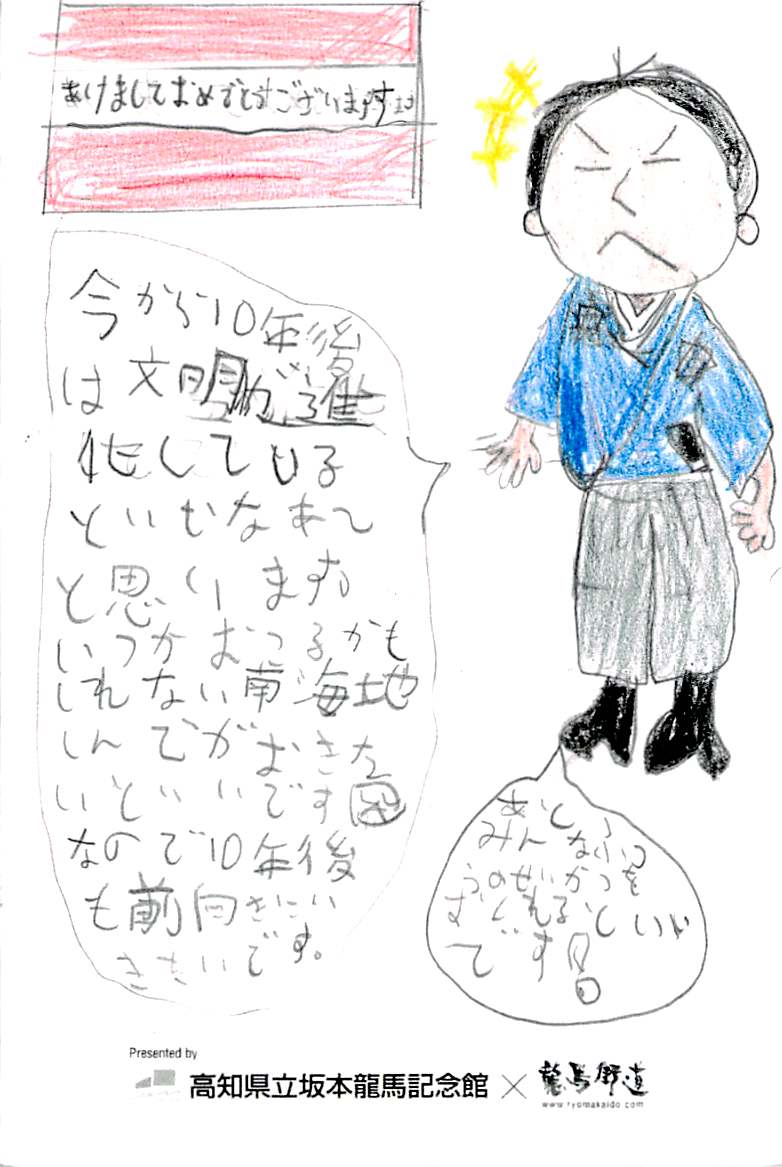 あけましておめでとうございます
今から10年後
は文明が進
化している
といいなあて
と思います。
いつかおこるかも
しれない南海地
しんでがおきな
いといいです
なので10年後
も前向きにい
きたいです。
あと、
みんなふつ
うのせいかつを
おくれるといい
です
Presented by
高知県立坂本龍馬記念館×龍馬街道
www.ryomakaido.com